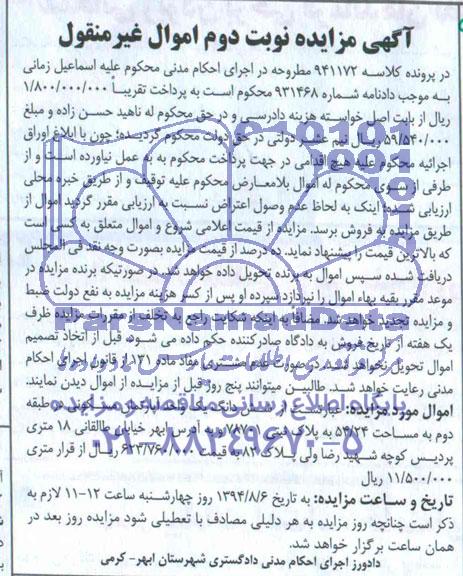 آگهی مزایده نوبت دوم اموال غیرمنقول
در پرونده کلاسه ۹۴۱۱۷۲ مطروحه در اجرای احکام مدنی محکوم علیه اسماعیل زمانی
به موجب دادنامه شماره ۹۳۱۴۶۸ محکوم است به پرداخت تقریباً ۱/۸۰۰/۰۰۰/۰۰۰
ریال از بابت اصل خواسته هزینه دادرسی و در حق محکوم له ناهید حسن زاده و مبلغ
۵۹/۵۴۰/۰۰۰ ریال نیم عشر دولتی در حق دولت محکوم گردیده؛ چون با ابلاغ اوراق
اجرائیه محکوم علیه هیچ اقدامی در جهت پرداخت محکوم به به عمل نیاورده است و از
طرفی از سوی محکوم له اموال بلامعارض محکوم علیه توقیف و از طریق خبره محلی
ارزیابی شده؛ اینک به لحاظ عدم وصول اعتراض نسبت به ارزیابی مقرر گردید اموال از
طریق مزایده به فروش برسد. مزایده از قیمت اعلامی شروع و اموال متعلق به کسی است
که بالاترین قیمت را پیشنهاد نماید. ده درصد از قیمت مزایده بصورت وجه نقد فی المجلس
دریافت شده سپس اموال به برنده تحویل داده خواهد شد. در صورتیکه برنده مزایده در
موعد مقرر بقیه بهاء اموال را نپردازد سپرده او پس از کسر هزینه مزایده به نفع دولت ضبط
و مزایده تجدید خواهد شد. مضافا به اینکه شکایت راجع به تخلف از مقررات مزایده ظرف
یک هفته از تاریخ فروش به دادگاه صادرکننده حکم داده می شود، قبل از اتخاذ تصمیم
اموال تحویل نخواهد شد. در صورت عدم مشتری مفاد ماده ۱۳۱ از قانون اجرای احکام
مدنی رعایت خواهد شد. طالبین میتوانند پنج روز قبل از مزایده از اموال دیدن نمایند.
اموال مورد مزایده: عبارتست از شش دانگ یک واحد آپارتمان مسکونی در طبقه
دوم به مساحت ۵۴/۲۴ به پلاک ثبتی ۷۸۷۰۱ و به آدرس ابهر خیابان طالقانی ۱۸ متری
پردیس کوچه شهید رضا ولی پلاک ۸۲ به قیمت ۶۲۳/۷۶۰/۰۰۰ ریال از قرار متری
۱۱/۵۰۰/۰۰۰ ریال
تاریخ و ساعت مزایده: به تاریخ ۱۳۹۴/۸/۶ روز چهارشنبه ساعت ۱۲-۱۱ لازم به
ذکر است چنانچه روز مزایده به هر دلیلی مصادف با تعطیلی شود مزایده روز بعد در
همان ساعت برگزار خواهد شد.
دادورز اجرای احکام مدنی دادگستری شهرستان ابهر- کرمی
ParsNamadData
پایگاه اطلاع رسانی مناقصه و مزایده
۰۲۱-۸۸۳۴۹۶۷۰-۵